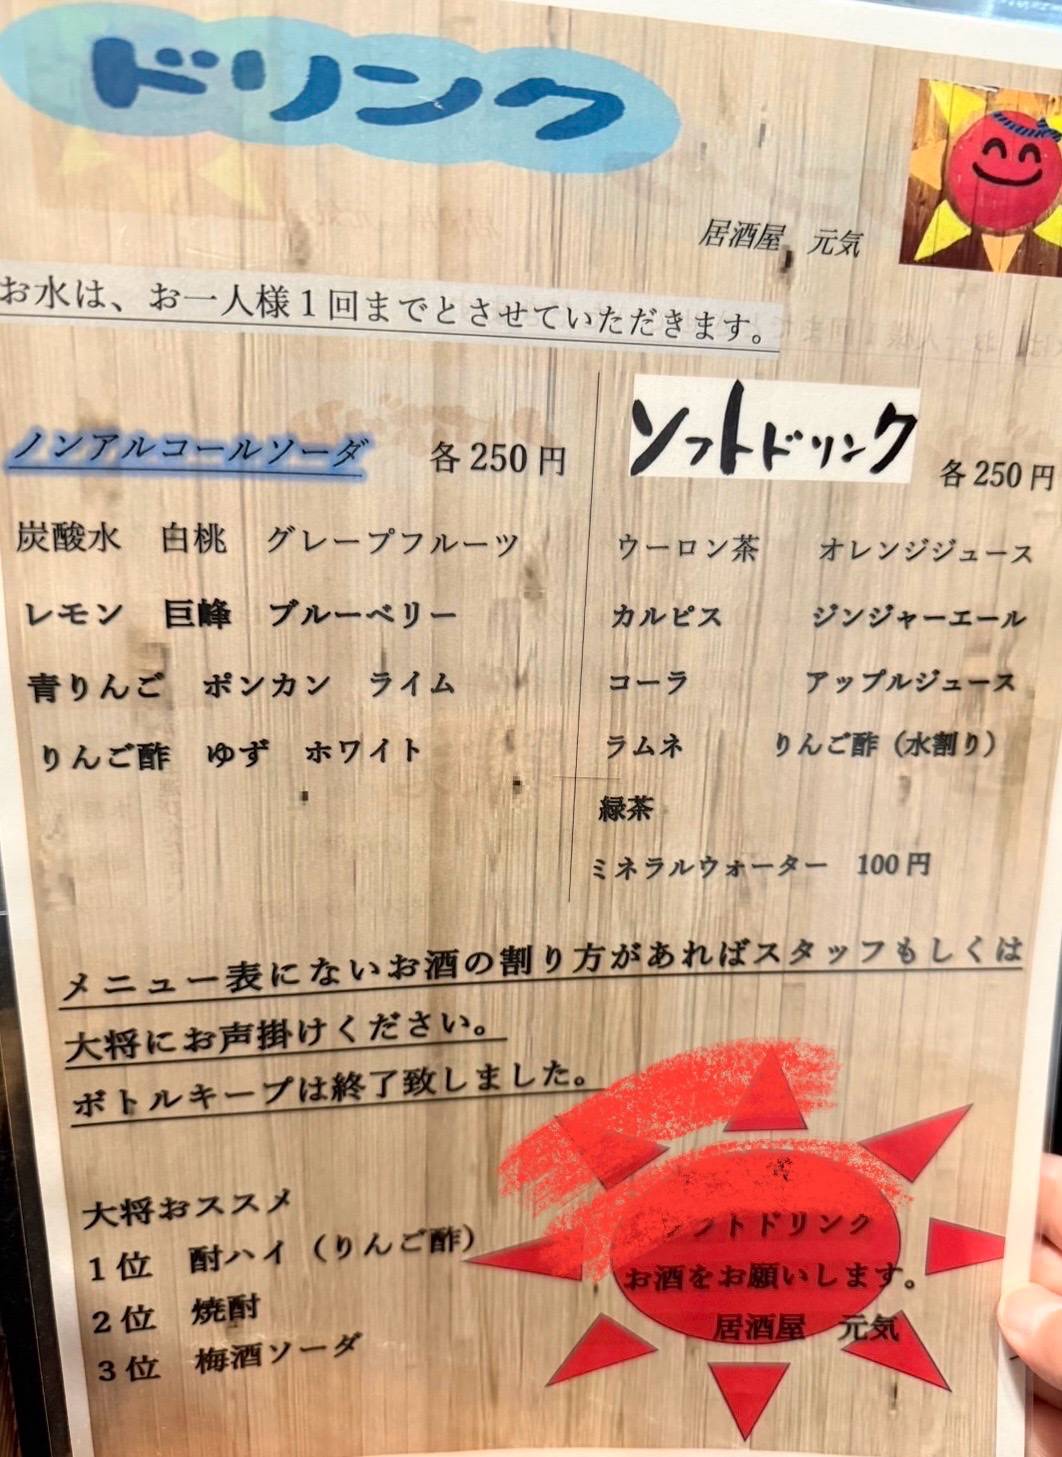 ドリンク
居酒屋 元気
お水は、お一人様1回までとさせていただきます。
ノンアルコールソーダ 各250円
炭酸水 白桃 グレープフルーツ
レモン 巨峰 ブルーベリー
青りんご ポンカン ライム
りんご酢 ゆず ホワイト
ソフトドリンク 各250円
ウーロン茶 オレンジジュース
カルピス ジンジャーエール
コーラ アップルジュース
ラムネ りんご酢（水割り）
緑茶
ミネラルウォーター 100円
メニュー表にないお酒の割り方があればスタッフもしくは
大将にお声掛けください。
ボトルキープは終了致しました。
大将おススメ
1位 酎ハイ（りんご酢）
2位 焼酎
3位 梅酒ソーダ
ソフトドリンク
お酒をお願いします。
居酒屋 元気